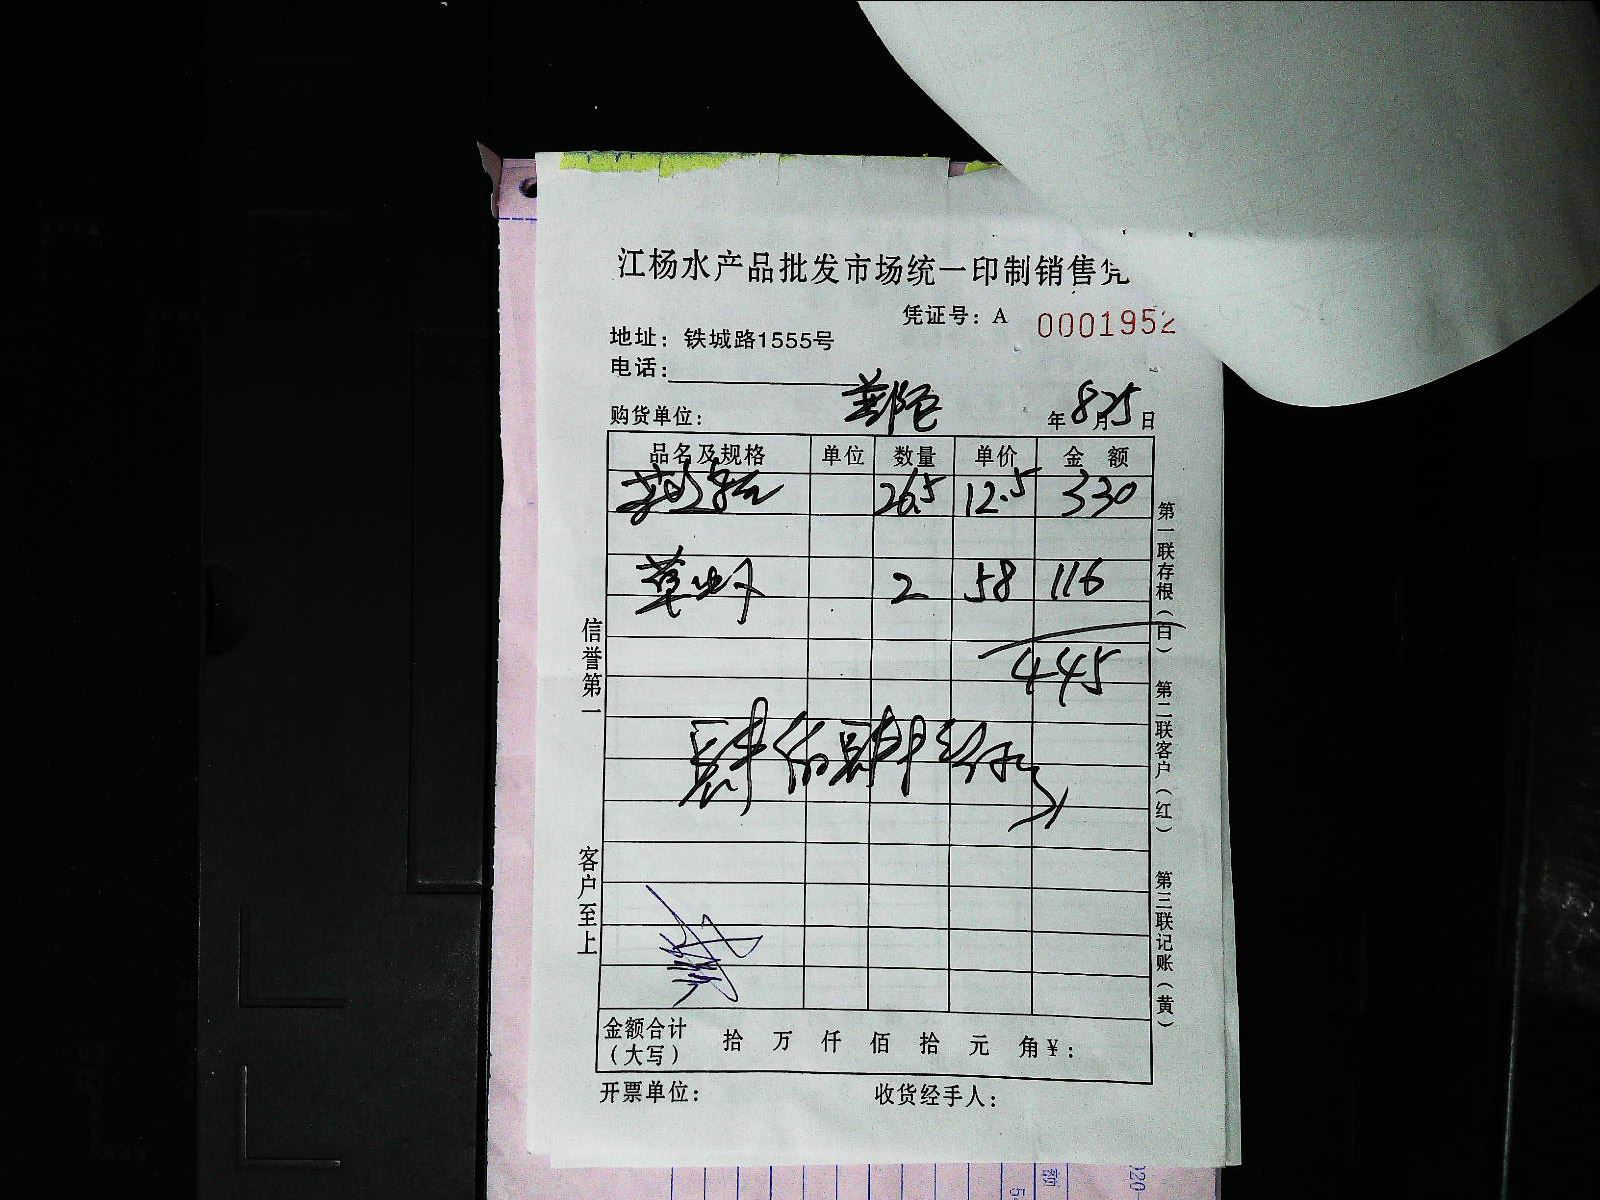 江杨水产品批发市场统一印制销售凭
凭证号：A 0001952
地址：铁城路1555号
电话：
购货单位： 年8月25日
品名及规格 单位 数量 单价 金额
26.5 12.5 330
草虾 2 58 116
445
肆佰肆拾伍元
信誉第一
客户至上
第一联存根（白） 第二联客户（红） 第三联记账（黄）
金额合计（大写） 拾 万 仟 佰 拾 元 角 ¥：
开票单位： 收货经手人：